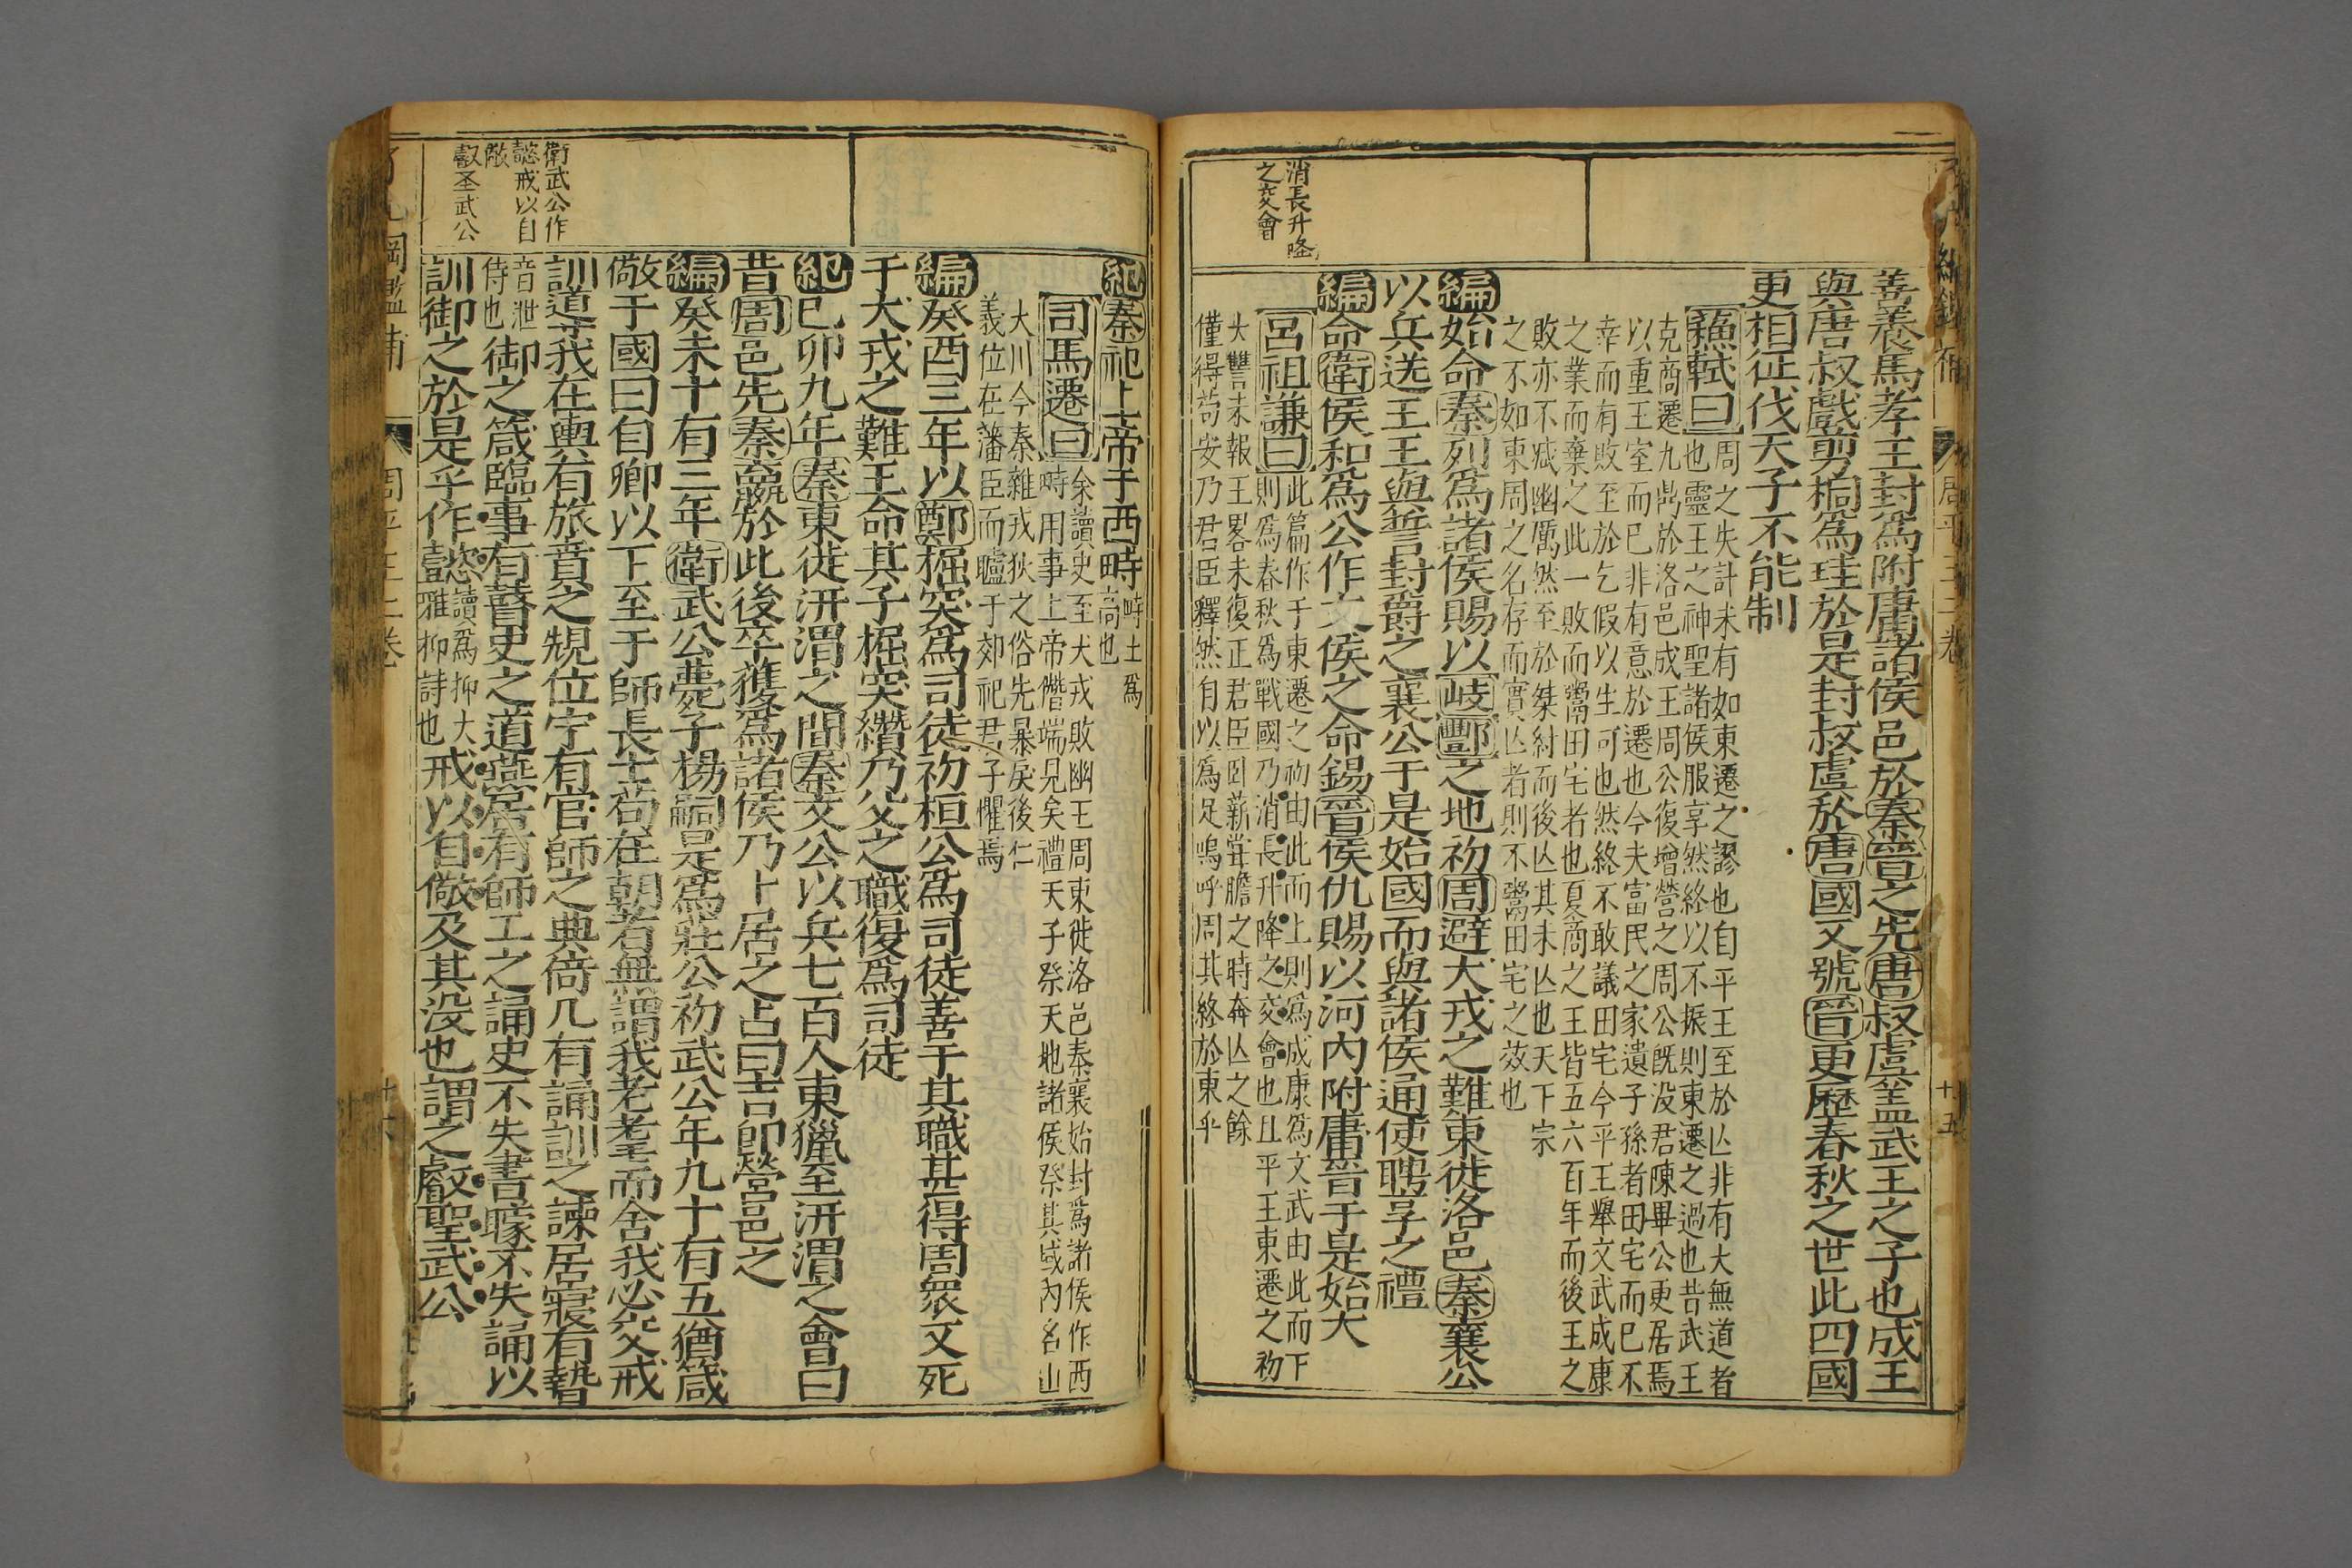 善養馬孝王封爲附庸諸侯邑於秦晉之先唐叔虞盖武王之子也成王
與唐叔戲剪桐爲珪於是封叔虞於唐國又號晉更歷春秋之世此四國
更相征伐天子不能制
蘇軾曰
周之失計未有如東遷之謬也自平王至於亾非有大無道者
也靈王之神聖諸侯服享然終以不振則東遷之過也昔武王
克商遷九鼎於洛邑成王周公復增營之周公旣没君陳畢公更居焉
以重王室而已非有意於遷也今夫富民之家遺子孫者田宅而已不
幸而有敗至於乞假以生可也然終不敢議田宅今平王舉文武成康
之業而棄之此一敗而鬻田宅者也夏商之王皆五六百年而後王之
敗亦不減幽厲然至於桀紂而後亾其未亾也天下宗
之不如東周之名存而實亾者則不鬻田宅之效也
編始命秦列爲諸侯賜以岐酆之地初周避犬戎之難東徙洛邑秦襄公
以兵送王王與誓封爵之襄公于是始國而與諸侯通使聘享之禮
編命衛侯和爲公作文侯之命錫晉侯仇賜以河內附庸晉于是始大
消長升降
之交會
呂祖謙曰
此篇作于東遷之初由此而上則爲成康爲文武由此而下
則爲春秋爲戰國乃消長升降之交會也且平王東遷之初
大讐未報王畧未復正君臣卧薪嘗膽之時奔亾之餘
僅得苟安乃君臣釋然自以爲足嗚呼周其終於東乎
十五
紀秦祀上帝于西畤
畤土爲
高也
司馬遷曰
余讀史至犬戎敗幽王周東徙洛邑秦襄始封爲諸侯作西
畤用事上帝僭端見矣禮天子祭天地諸侯祭其域內名山
大川今秦雜戎狄之俗先暴戾後仁
義位在藩臣而臚于郊祀君子懼焉
編癸酉三年以鄭掘突爲司徒初桓公爲司徒善于其職甚得周衆又死
于犬戎之難王命其子掘突纘乃父之職復爲司徒
紀己卯九年秦東徙汧渭之間秦文公以兵七百人東獵至汧渭之會曰
昔周邑先秦嬴於此後卒獲爲諸侯乃卜居之占曰吉卽營邑之
編癸未十有三年衛武公薨子楊嗣是爲莊公初武公年九十有五猶箴
儆于國曰自卿以下至于師長士苟在朝者無謂我老耄而舍我必交戒
訓道我在輿有旅賁之規位宁有官師之典倚几有誦訓之諫居寢有暬
音泄
侍也
御之箴臨事有瞽史之道燕居有師工之誦史不失書矇不失誦以
訓御之於是乎作懿
讀爲抑大
雅抑詩也
戒以自儆及其没也謂之叡聖武公
衛武公作
懿戒以自
儆
叡圣武公